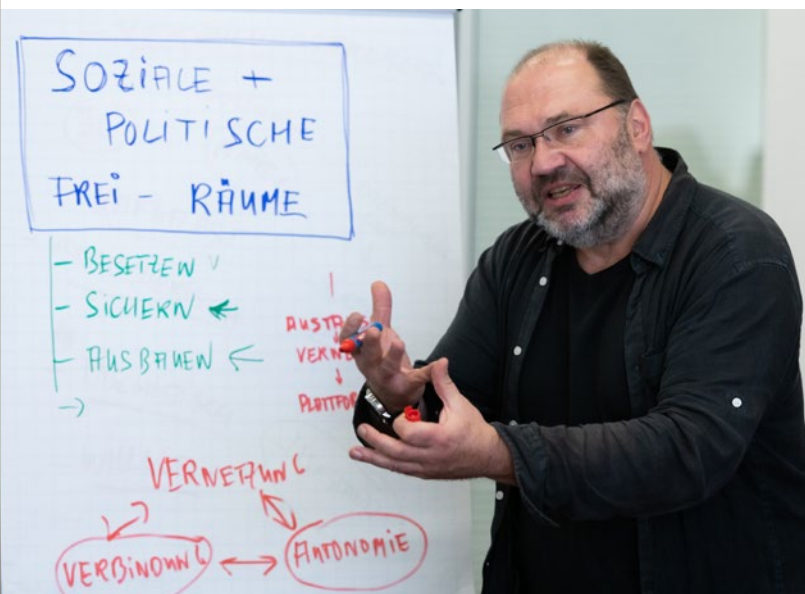 SOZiALE +
POLITISCHE
FREi - RÄUME
- BESETZEN
- SiCHERN ←
- AUSBAUEN ←
→
AUSTA
↓
VERNE
↓
PLATTFOR
VERNETZUNG
VERBiNDUNG ↔ AUTONOMiE